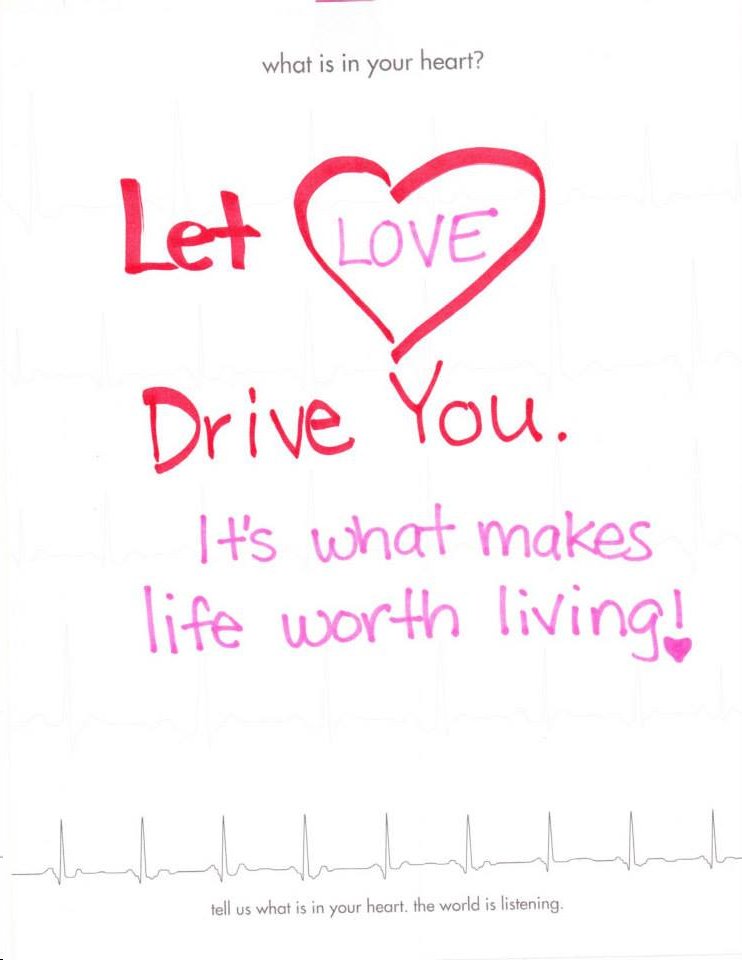 what is in your heart?
Let LOVE
Drive You.
It's what makes
life worth living!
tell us what is in your heart. the world is listening.